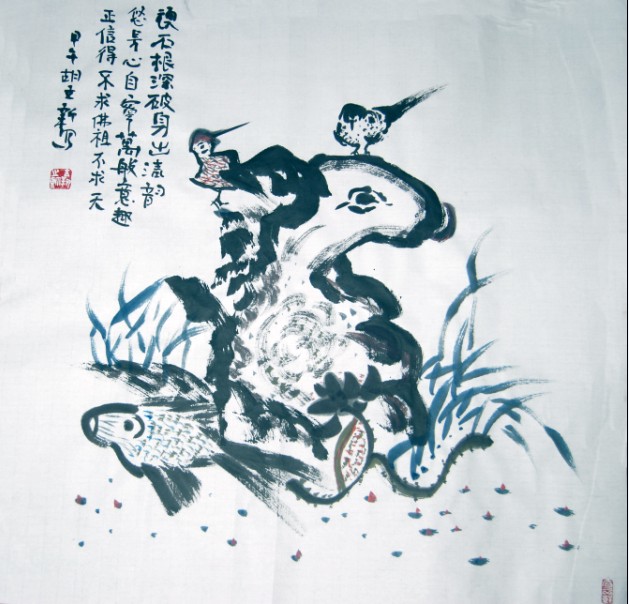 石根深破身出韵
悠心自寧萬般意趣
正信得不求佛祖不求天
甲午胡新写